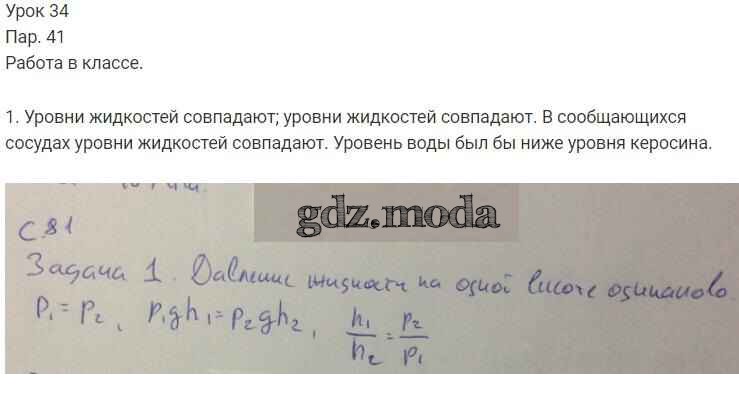 Урок 34
Пар. 41
Работа в классе.
1. Уровни жидкостей совпадают; уровни жидкостей совпадают. В сообщающихся
сосудах уровни жидкостей совпадают. Уровень воды был бы ниже уровня керосина.
gdz.moda
С.81
Задача 1. Давление жидкости на одной высоте одинаково.
P₁ = P₂, ρ₁gh₁ = ρ₂gh₂, h₁/h₂ = ρ₂/ρ₁